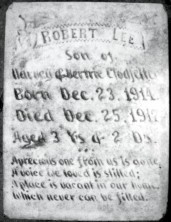 ROBERT LEE
Son of
Harvey & Bertie Clodfelter
Born Dec. 23, 1914
Died Dec. 25, 1917
Aged 3 Ys & 2 Ds.
A precious one from us is gone,
A voice we loved is stilled;
A place is vacant in our home,
Which never can be filled.